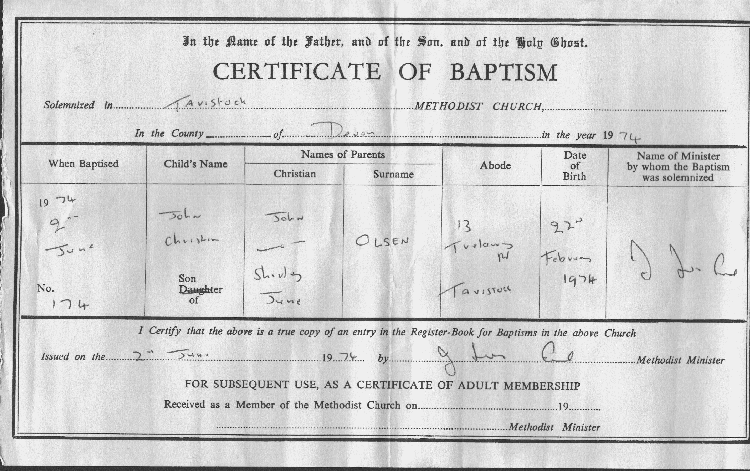 In the Name of the Father, and of the Son, and of the Holy Ghost.
CERTIFICATE OF BAPTISM
Solemnized in Tavistock METHODIST CHURCH,
In the County of Devon in the year 1974
When Baptised
Child's Name
Names of Parents
Christian
Surname
Abode
Date of Birth
Name of Minister by whom the Baptism was solemnized
1974
2nd
June
No.
174
John
Christian
Son
Daughter
of
John
Shirley
June
OLSEN
13
Rd
Tavistock
22nd
February
1974
I Certify that the above is a true copy of an entry in the Register-Book for Baptisms in the above Church
Issued on the 2nd June 1974 by J Methodist Minister
FOR SUBSEQUENT USE, AS A CERTIFICATE OF ADULT MEMBERSHIP
Received as a Member of the Methodist Church on 19
Methodist Minister